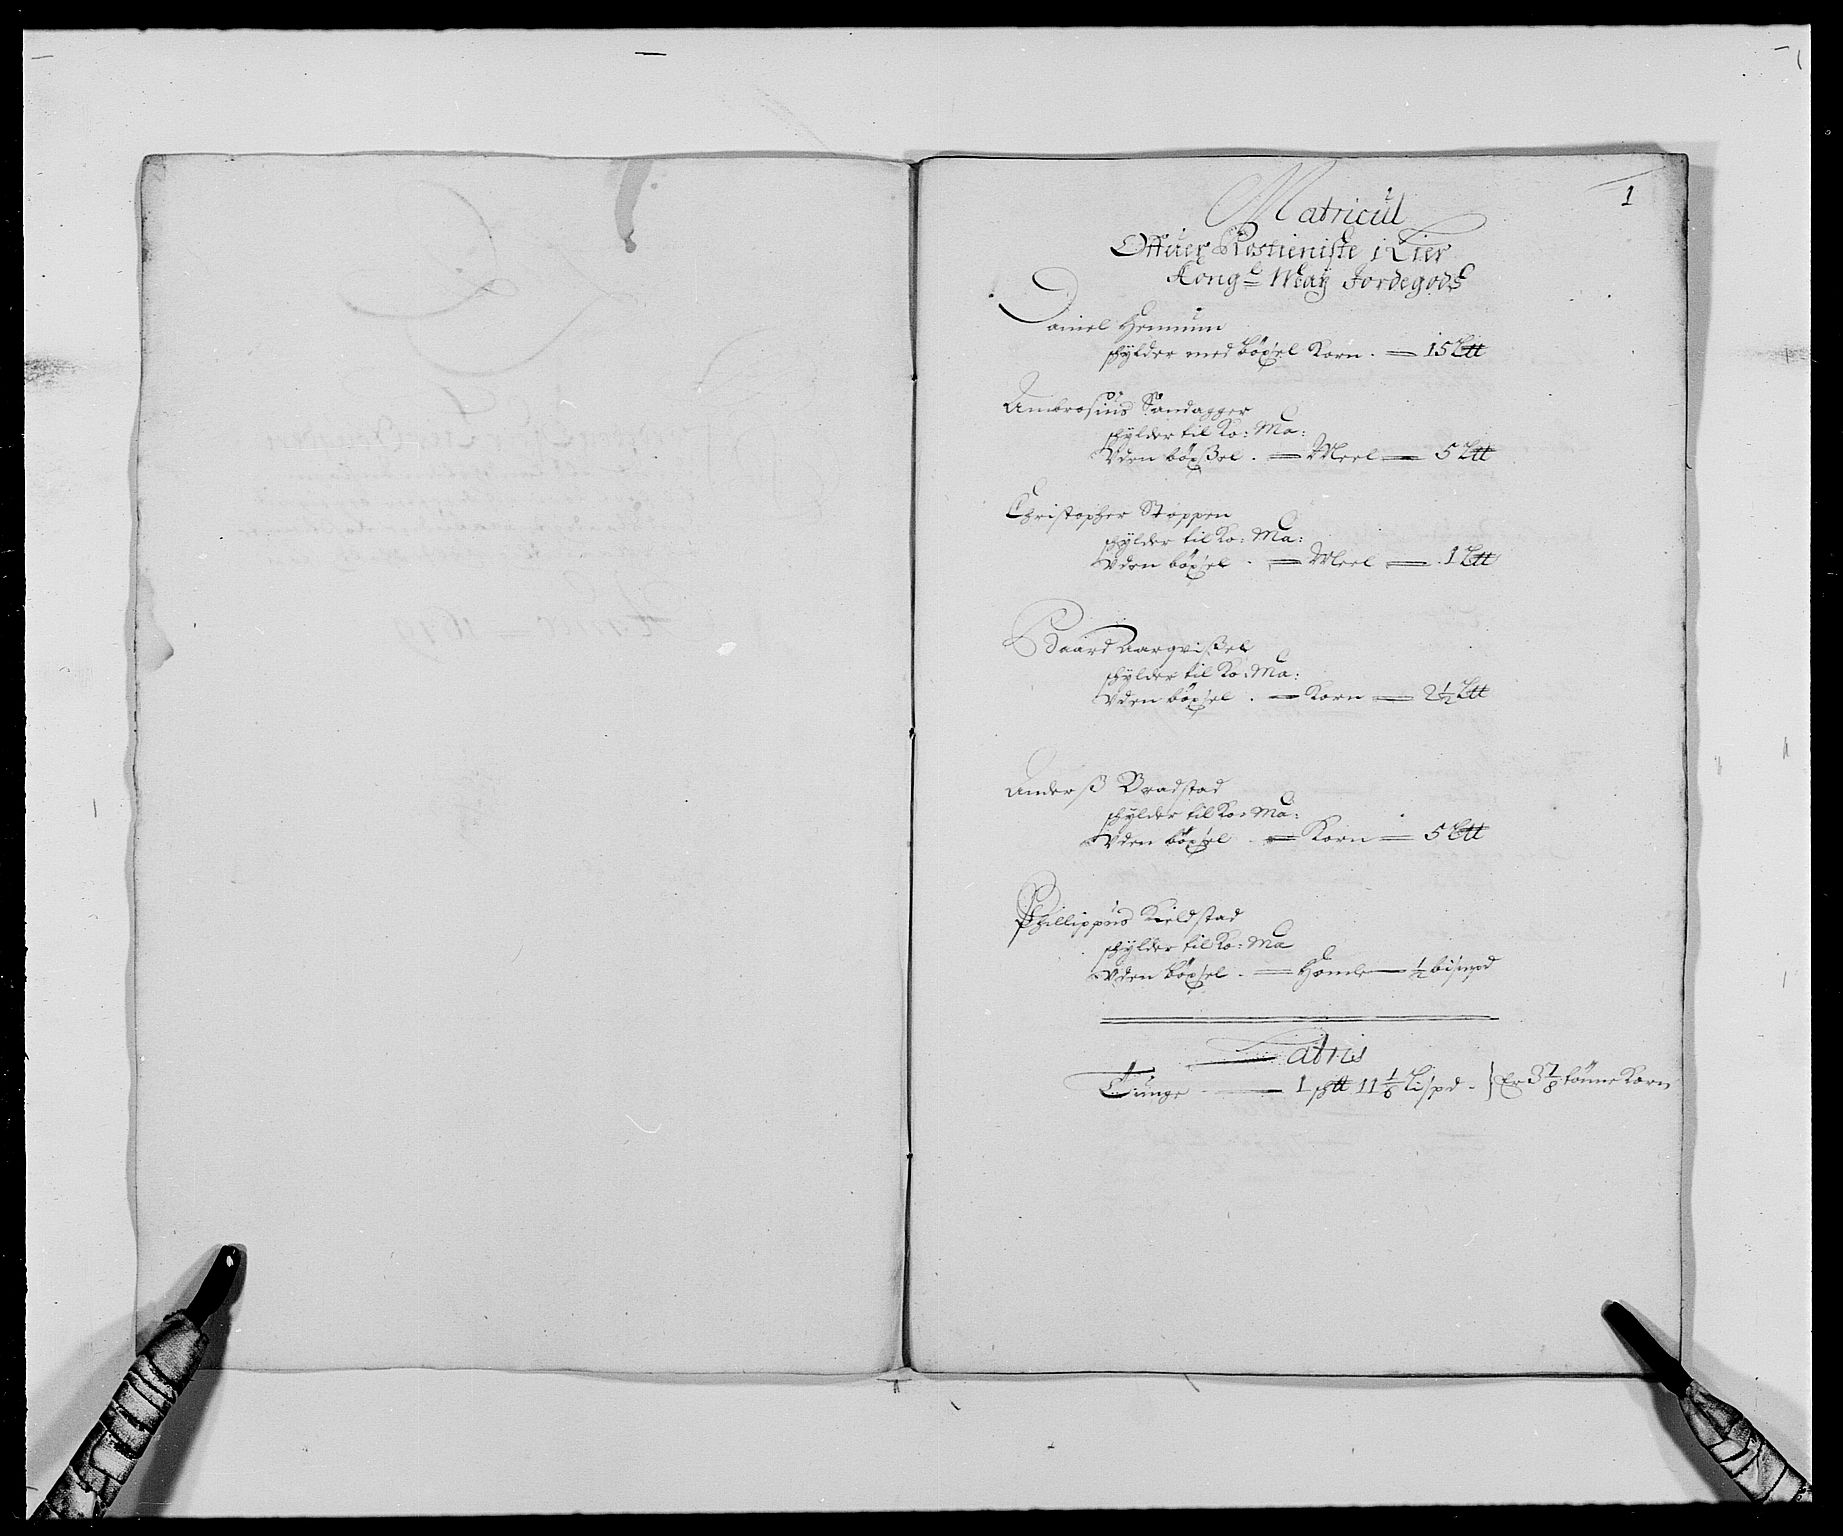 1
Matricul
Offuer Rostieniste i Lier
Kong: May Jordegods
Daniel Hennum
schylder med böxel Korn. — 15 Ltt
Ambrosius Søndagger
schylder til Ko: Ma:
Vden böxsel. — Meel — 5 Ltt
Christopher Stoppen
schylder til Ko: Ma:
Vden böxsel. — Meel — 1 Ltt
Baard
schylder til Ko: Ma:
Vden böxsel. — Korn — 2½ Ltt
Anderss Bradstad
schylder til Ko: Ma:
Vden böxsel — Korn — 5 Ltt
Phillippus Kieldstad
schylder til Ko: Ma
Vden böxsel. — Homle — ½ bismpd
Latus
Tunge — 1 sch 11 Lispd. Er 3⅞ tönne Korn